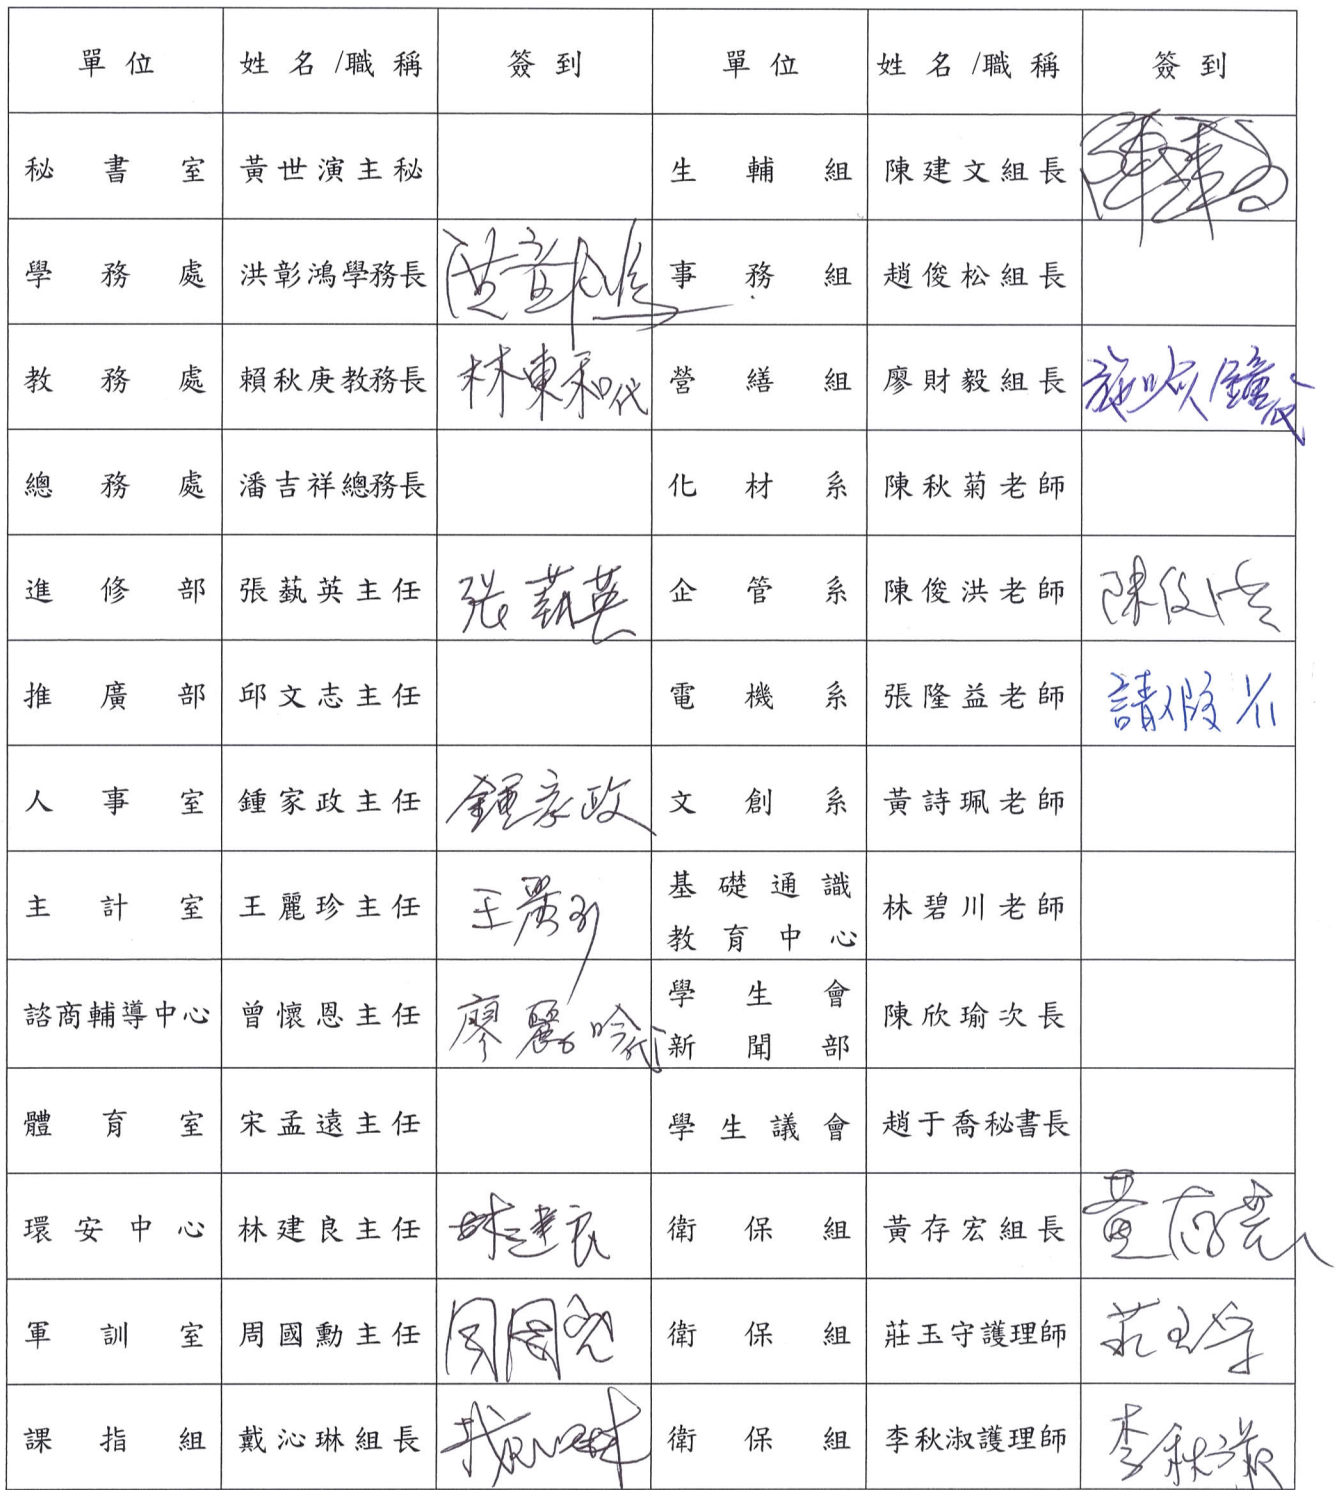 單位 姓名/職稱 簽到 單位 姓名/職稱 簽到
秘書室 黃世演主秘 生輔組 陳建文組長
學務處 洪彰鴻學務長 洪彰鴻 事務組 趙俊松組長
教務處 賴秋庚教務長 林東和代 營繕組 廖財毅組長
總務處 潘吉祥總務長 化材系 陳秋菊老師
進修部 張蓺英主任 張蓺英 企管系 陳俊洪老師 陳俊洪
推廣部 邱文志主任 電機系 張隆益老師 請假 1/11
人事室 鍾家政主任 鍾家政 文創系 黃詩珮老師
主計室 王麗珍主任 王麗珍 基礎通識
教育中心 林碧川老師
諮商輔導中心 曾懷恩主任 廖麗吟代 學生會
新聞部 陳欣瑜次長
體育室 宋孟遠主任 學生議會 趙于喬秘書長
環安中心 林建良主任 林建良 衛保組 黃存宏組長 黃存宏
軍訓室 周國勳主任 周國勳 衛保組 莊玉守護理師 莊玉守
課指組 戴沁琳組長 戴沁琳 衛保組 李秋淑護理師 李秋淑